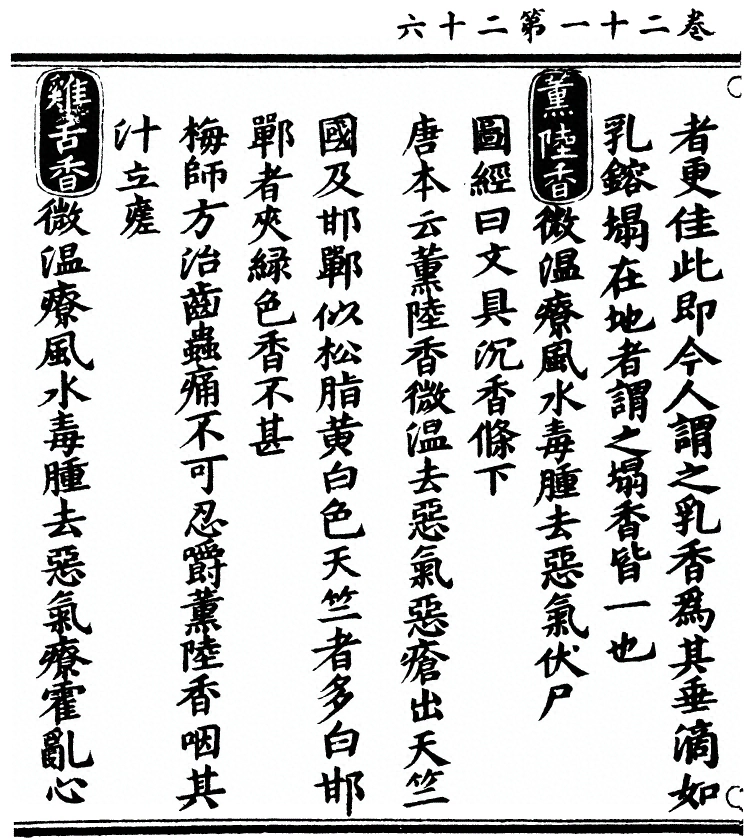 卷二十一第二十六
者更佳此即今人謂之乳香爲其垂滴如
乳鎔塌在地者謂之塌香皆一也
薰陸香微温療風水毒腫去惡氣伏尸
圖經曰文具沉香條下
唐本云薰陸香微温去惡氣惡瘡出天竺
國及邯鄲似松脂黄白色天竺者多白邯
鄲者夾緑色香不甚
梅師方治齒蟲痛不可忍嚼薰陸香咽其
汁立瘥
雞舌香微温療風水毒腫去惡氣療霍亂心